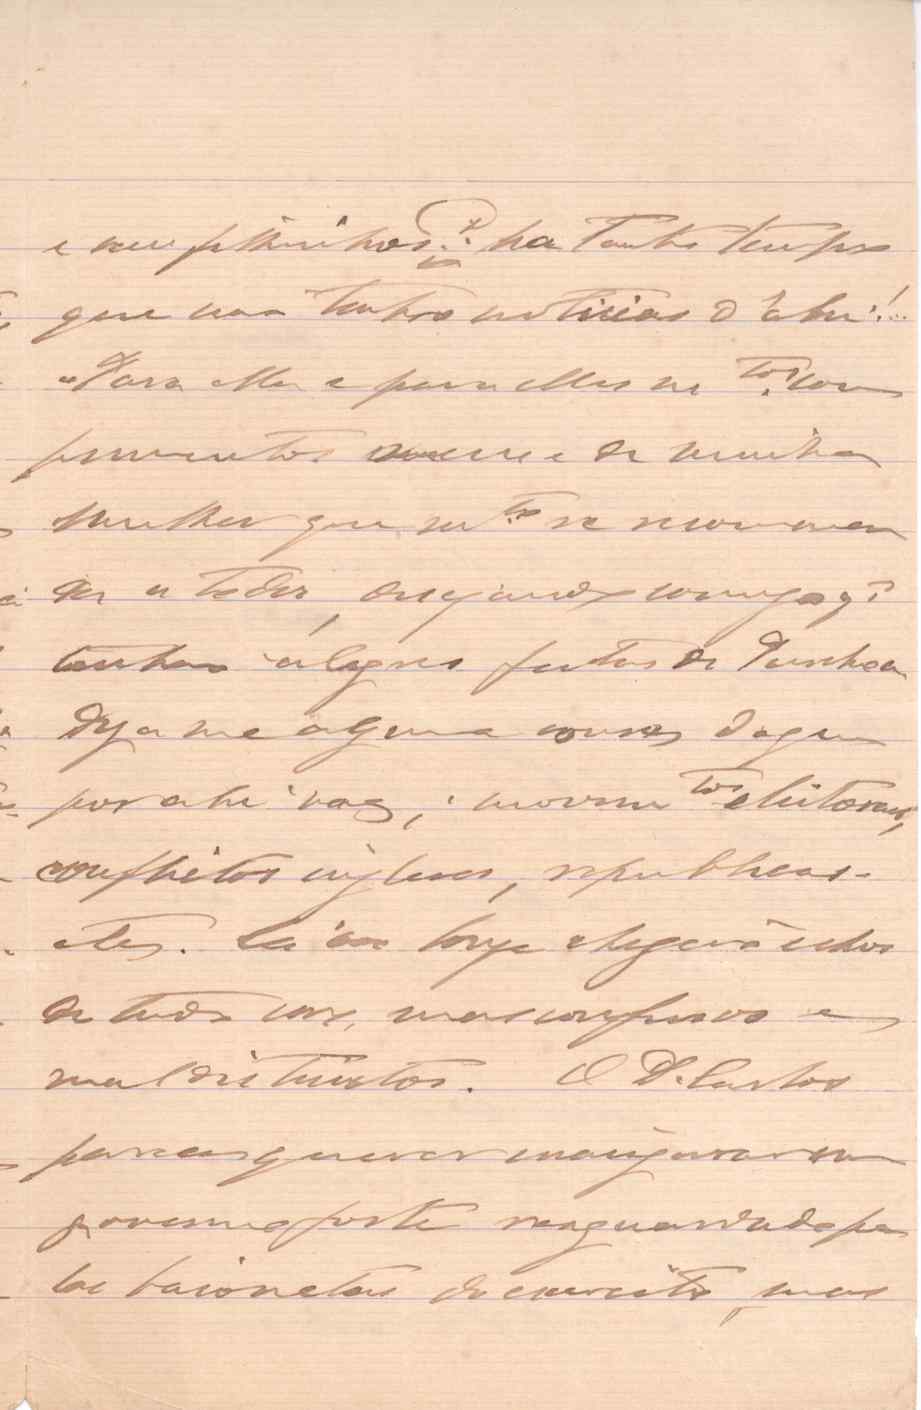 e seus filhinhos? ha tanto tempo
que não tenho noticias d'ahi!..
Para ella e para elles os tos. com
primentos meus e de minha
mulher que mto. se recommen
da a todos, desejando comigo q.
tenham alegres festas de Paschoa
Diga me alguma cousa do que
por ahi vae; movimtos eleitoraes,
conflictos inglezes, republicas.
etc. Cá ao longe chegará echos
de tudo isso, mas confusos e
mal distinctos. O D. Carlos
parece querer inaugurar um
governo forte resguardado pe
las baionetas do exercito, mas